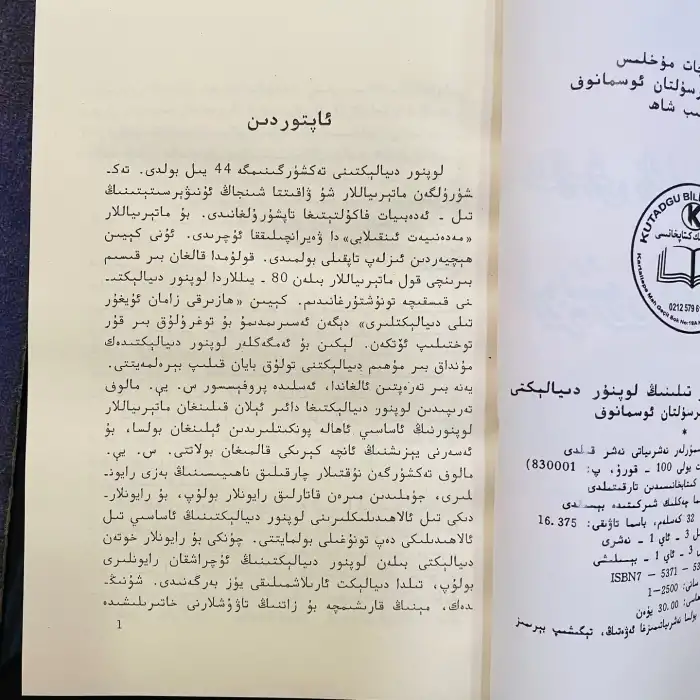 ئاپتوردىن
لوپنور دىيالېكتىنى تەكشۈرگىنىمگە 44 يىل بولدى. تەك-
شۈرۈلگەن ماتېرىياللار شۇ ۋاقىتتا شىنجاڭ ئۇنىۋېرسىتېتىنىڭ
تىل - ئەدەبىيات فاكۇلتېتىغا تاپشۇرۇلغانىدى. بۇ ماتېرىياللار
«مەدەنىيەت ئىنقىلابى»دا ۋەيرانچىلىققا ئۇچرىدى. ئۇنى كېيىن
ھېچيەردىن ئىزلەپ تاپقىلى بولمىدى. قولۇمدا قالغان بىر قىسىم
بىرىنچى قول ماتېرىياللار بىلەن 80 - يىللاردا لوپنور دىيالېكتى-
نى قىسقىچە تونۇشتۇرغانىدىم. كېيىن «ھازىرقى زامان ئۇيغۇر
تىلى دىيالېكتلىرى» دېگەن ئەسىرىمدىمۇ بۇ توغرۇلۇق بىر قۇر
توختىلىپ ئۆتكەن. لېكىن بۇ ئەمگەكلەر لوپنور دىيالېكتىدەك
مۇنداق بىر مۇھىم دىيالېكتنى تولۇق بايان قىلىپ بېرەلمەيتتى.
يەنە بىر تەرەپتىن ئالغاندا، ئەسلىدە پروفېسسور س. يې. مالوف
تەرىپىدىن لوپنور دىيالېكتىغا دائىر ئېلان قىلىنغان ماتېرىياللار
لوپنورنىڭ ئاساسىي ئاھالە پونكىتلىرىدىن ئېلىنغان بولسا، بۇ
ئەسەرنى يېزىشنىڭ ئانچە كېرىكى قالمىغان بولاتتى. س. يې.
مالوف تەكشۈرگەن نۇقتىلار چارقىلىق ناھىيىسىنىڭ بەزى رايون-
لىرى، جۈملىدىن مىرەن قاتارلىق رايونلار بولۇپ، بۇ رايونلار-
دىكى تىل ئالاھىدىلىكلىرىنى لوپنور دىيالېكتىنىڭ ئاساسىي تىل
ئالاھىدىلىكى دەپ تونۇغىلى بولمايتتى. چۈنكى بۇ رايونلار خوتەن
دىيالېكتى بىلەن لوپنور دىيالېكتىنىڭ ئۇچراشقان رايونلىرى
بولۇپ، تىلدا دىيالېكت ئارىلاشمىلىقى يۈز بەرگەنىدى. شۇنىڭ-
دەك، مېنىڭ قارىشىمچە بۇ زاتنىڭ تاۋۇشلارنى خاتىرىلىشىدە
1
مۇخلىس
ئوسمانوف
شاھ
KUTADGU BİL
K
كىتاپخانىسى
0212 579 6
تىلىنىڭ لوپنۇر دىيالېكتى
ئوسمانوف
*
نەشرىياتى نەشر قىلدى
يولى 100 - قورۇ، پ: 830001)
كىتابخانىسىدىن تارقىتىلدى
چەكلىك شىركىتىدە بېسىلدى
32 كەسلەم، باسما تاۋىقى: 16.375
3 - ئاي 1 - نەشرى
3 - ئاي 1 - بېسىلىشى
ISBN7 - 5371 - 53
سانى: 1-2500
30.00 يۈەن
بولسا نەشرىياتىمىزغا ئەۋەتىڭ، تېگىشىپ بېرىمىز